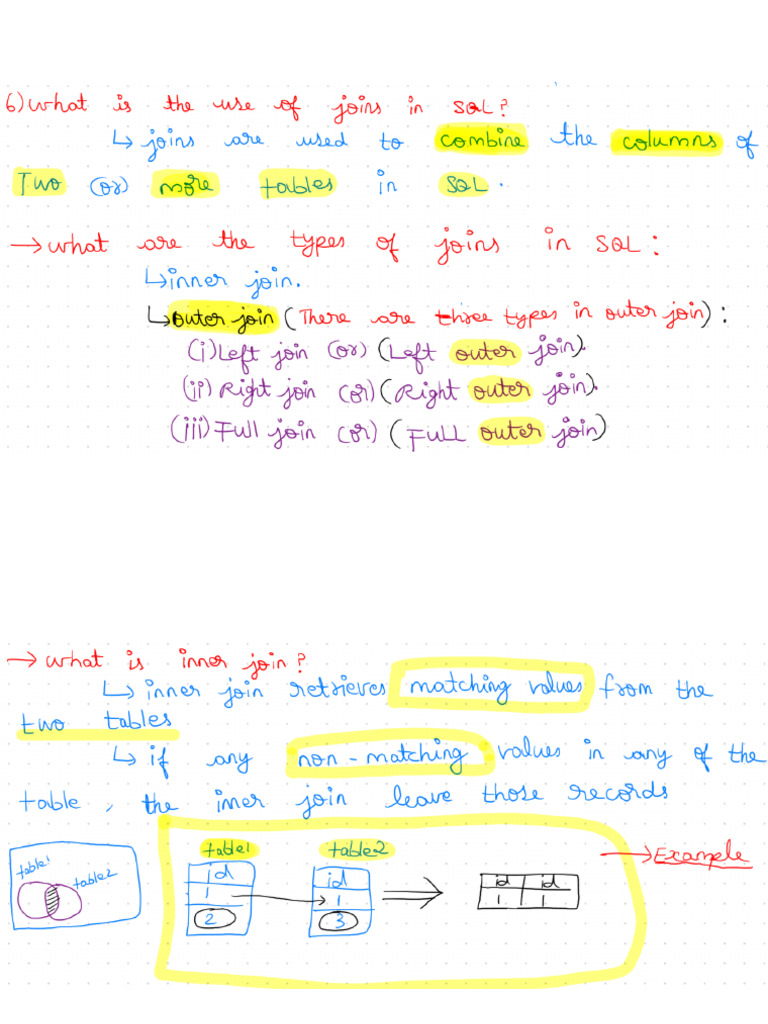 6) what is the use of joins in SQL?
↳ joins are used to combine the columns of
Two (or) more tables in SQL.
→ what are the types of joins in SQL:
↳ inner join.
↳ outer join (There are three types in outer join):
(i) Left join (or) (Left outer join).
(ii) Right join (or) (Right outer join).
(iii) Full join (or) (Full outer join)
→ what is inner join?
↳ inner join retrieves matching values from the
two tables
↳ if any non-matching values in any of the
table, the inner join leave those records
table1 table2
table1 table2 → Example
id id id id
1 1 1 1
2 3